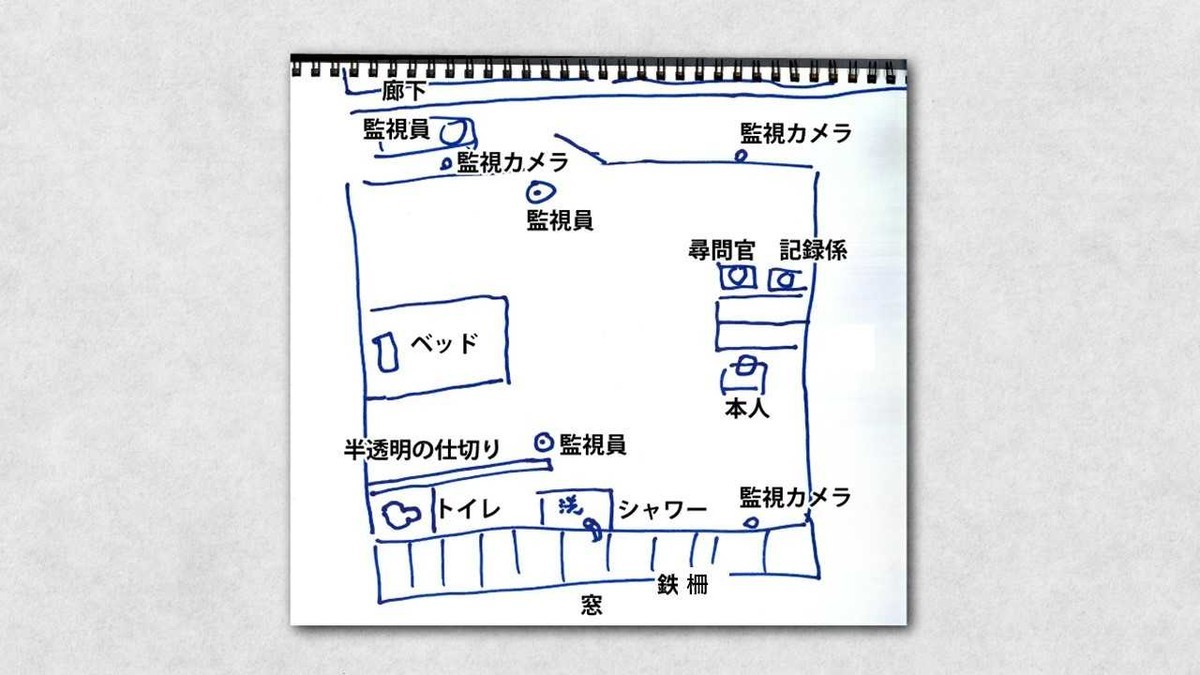 廊下
監視員
監視カメラ
監視カメラ
監視員
尋問官 記録係
ベッド
本人
半透明の仕切り
監視員
トイレ
洗
シャワー
監視カメラ
鉄柵
窓